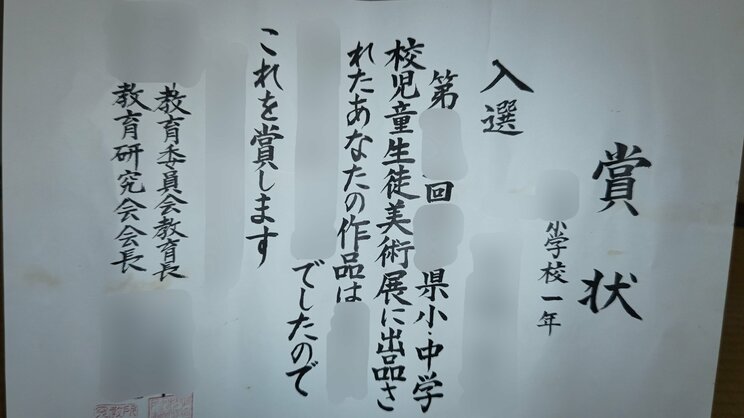 賞状
小学校一年
入選
第 回 県小・中学
校児童生徒美術展に出品さ
れたあなたの作品は
でしたので
これを賞します
教育委員会教育長
教育研究会会長